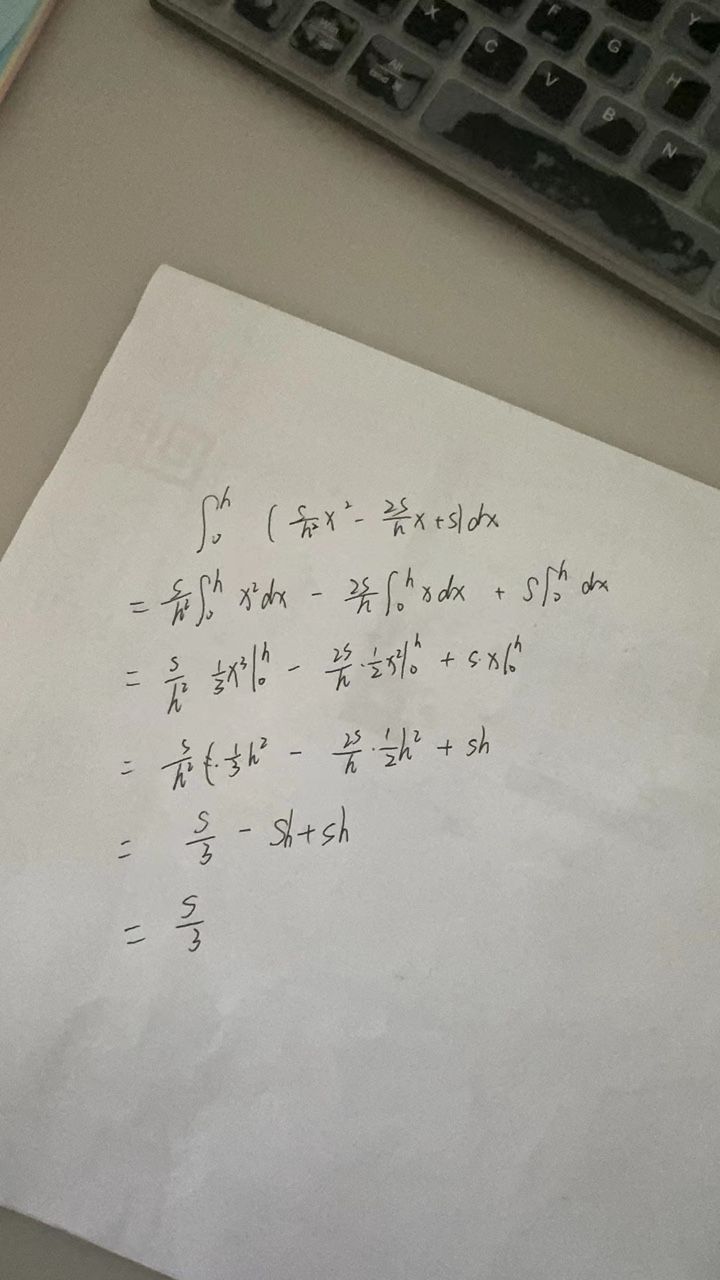 X F Y
Alt C G H
V B N
∫₀ʰ ( s/h² x² - 2s/h x + s) dx
= s/h² ∫₀ʰ x² dx - 2s/h ∫₀ʰ x dx + s ∫₀ʰ dx
= s/h² 1/3 x³ |₀ʰ - 2s/h · 1/2 x² |₀ʰ + s·x |₀ʰ
= s/h² · 1/3 h² - 2s/h · 1/2 h² + sh
= s/3 - sh + sh
= s/3